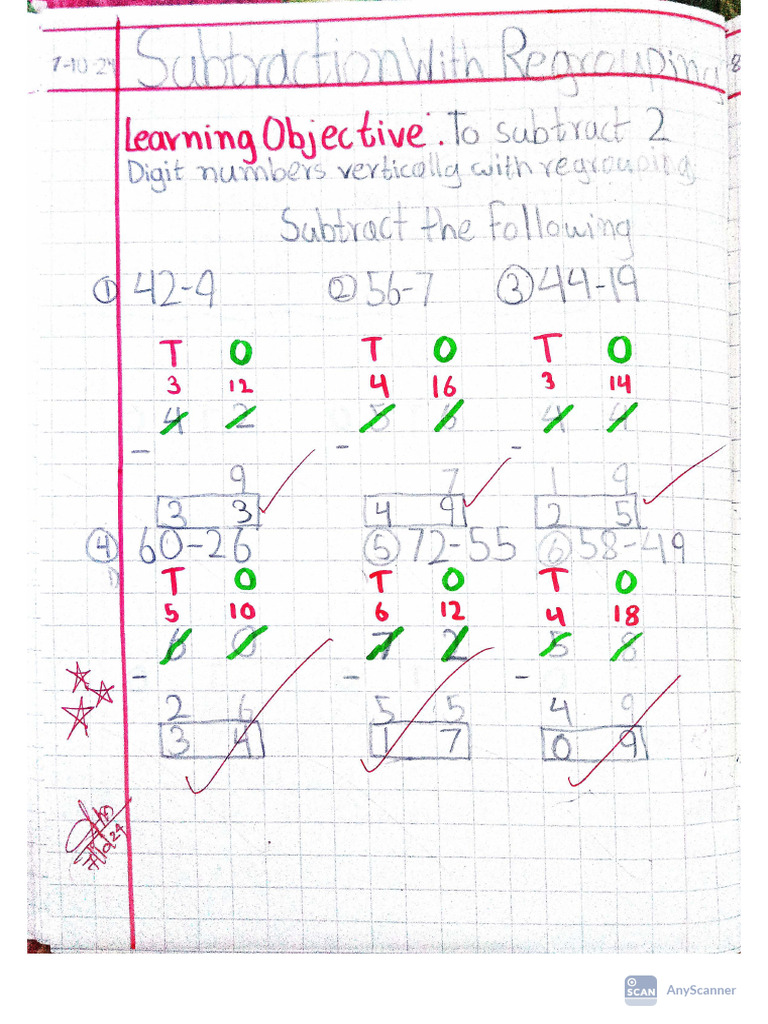 7-10-24 Subtraction With Regrouping 8
Learning Objective:. To subtract 2
Digit numbers vertically with regrouping
Subtract the following
① 42-9 ② 56-7 ③ 44-19
T O T O T O
3 12 4 16 3 14
4 2 5 6 4 4
- - -
9 7 1 9
3 3 4 9 2 5
④ 60-26 ⑤ 72-55 ⑥ 58-49
T O T O T O
5 10 6 12 4 18
6 0 7 2 5 8
- - -
2 6 5 5 4 9
3 4 1 7 0 9
SCAN AnyScanner